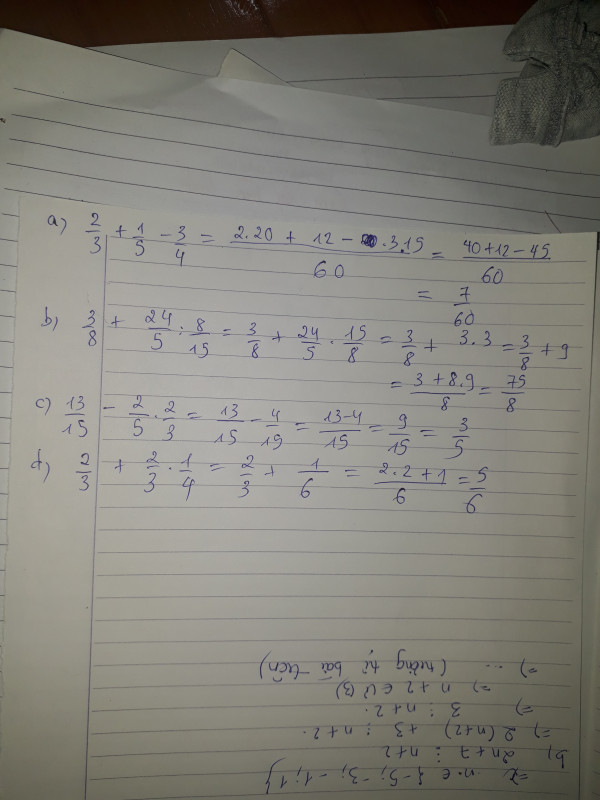 a) 2/3 + 1/5 - 3/4 = (2.20 + 12 - .3.15)/60 = (40+12-45)/60
= 7/60
b) 3/8 + 24/5 : 8/15 = 3/8 + 24/5 . 15/8 = 3/8 + 3.3 = 3/8 + 9
= (3+8.9)/8 = 75/8
c) 13/15 - 2/5 . 2/3 = 13/15 - 4/15 = (13-4)/15 = 9/15 = 3/5
d) 2/3 + 2/3 . 1/4 = 2/3 + 1/6 = (2.2+1)/6 = 5/6
=> n ∈ {-5; -3; -1; 1}
b, 2n+7 ⋮ n+2
=> 2(n+2) +3 ⋮ n+2.
=> 3 ⋮ n+2.
=> n+2 ∈ Ư(3)
=> ... (tương tự bài trên)